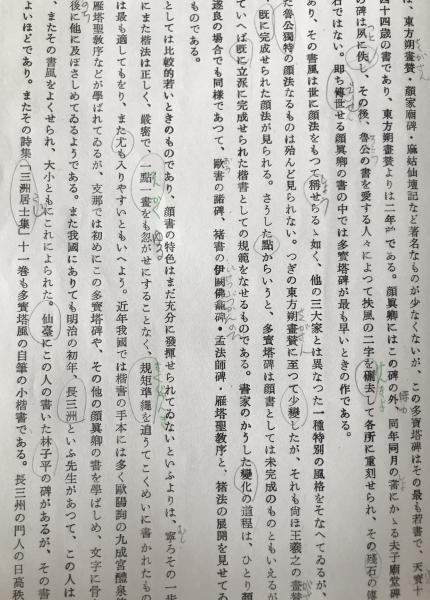 は、東方朔畫贊・顔家廟碑・麻姑仙壇記など著名なものが少なくないが、この多寶塔碑はその最も若書で、天寶十
四十四歳の書であり、東方朔畫贊よりは二年前である。顔眞卿にはこの碑の外、同年同月の書にかゝる夫子廟堂碑
の碑は夙に佚し、その後、魯公の書を愛する人々によつて扶風の二字を劖去して各所に重刻せられ、その殘石の傳
石ではない。卽ち傳世せる顔眞卿の書の中では多寶塔碑が最も早いときの作である。
あり、その書風は世に顔法をもつて稱せらるゝ如く、他の三大家とは異なつた一種特別の風格をそなへてゐるが、
た魯公獨特の顔法なるものは殆んど見られない。つぎの東方朔畫贊に至つて少變したが、それも尙ほ王羲之の畫贊
既に完成せられた顔法が見られる。さうした點からいうと、多寶塔碑は顔書としては未完成のものともいえるが
ていへば既に立派に完成せられた楷書としての規範をなせるものである。書家のかうした變化の道程は、ひとり顔
遂良の場合でも同様であつて、歐書の諸碑、褚書の伊闕佛龕碑・孟法師碑・雁塔聖教序と、褚法の展開を見せてゐ
ものである。
としては比較的若いときのものであり、顔書の特色はまだ充分に發揮せられてゐないといふよりは、寧ろその一歩
にまた楷法は正しく、嚴密で、一點一畫をも忽がせにすることなく、規矩準繩を追うてこくめいに書かれたもの
は最も適してもをり、また尤も入りやすいともいへよう。近年我國では楷書の手本には多く歐陽詢の九成宮醴泉
雁塔聖教序などが學ばれてゐるが、支那では初めにこの多寶塔碑や、その他の顔眞卿の書を學ばしめ、文字に骨
後に他に及ぼさしめてゐるようである。また我國にありても明治の初年、長三洲といふ先生があつて、この人は
、またその書風をよくせられ、大小ともにこれによられた。仙臺にこの人の書いた林子平の碑があるが、その書
よいほどであり。またその詩集「三洲居士集」十一巻も多寶塔風の自筆の小楷書である。長三州の門人の日高秩